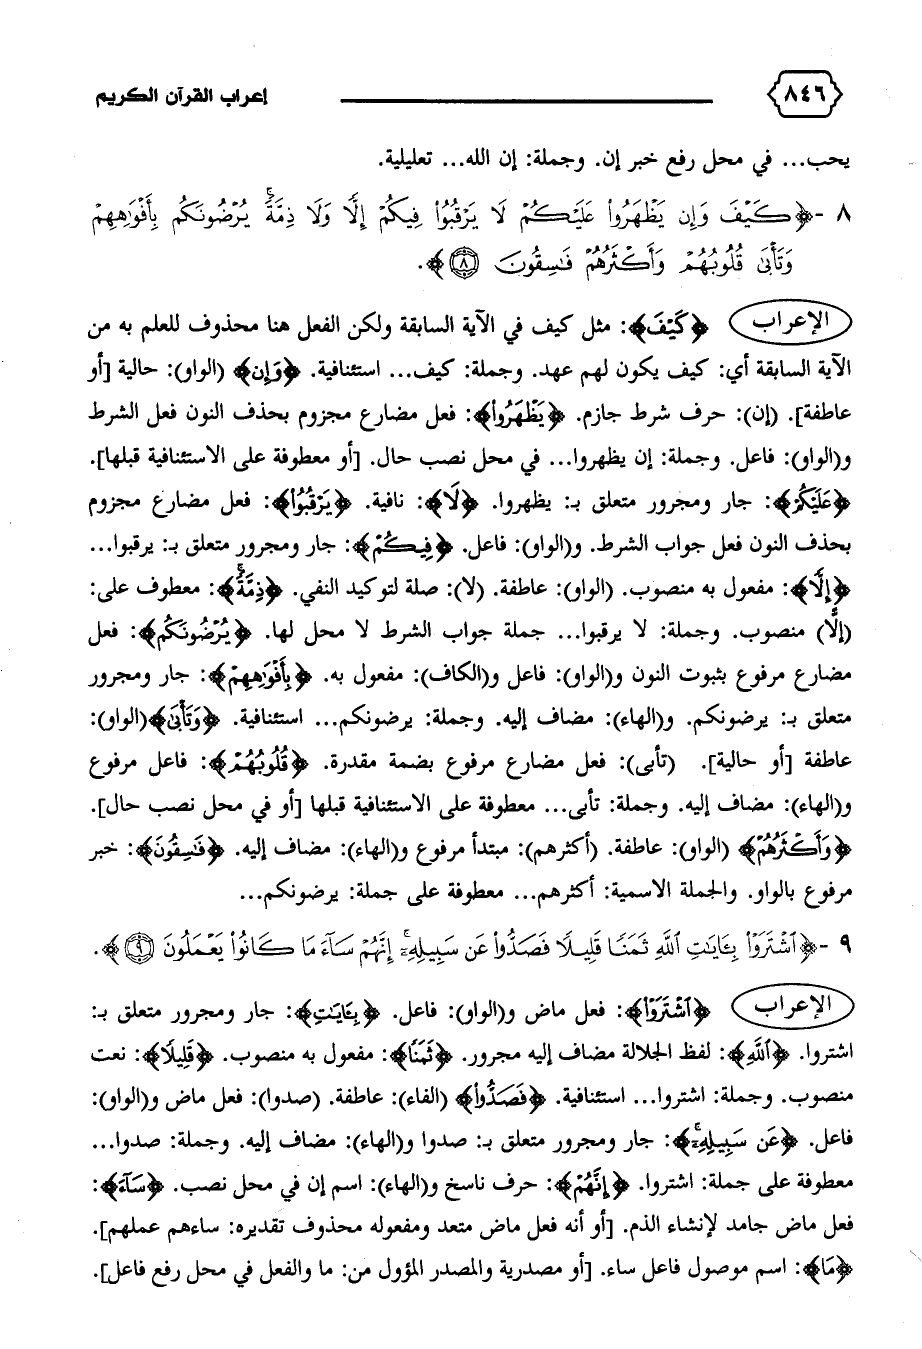 ٨٤٦ إعراب القرآن الكريم
يحب... في محل رفع خبر إن. وجملة: إن الله... تعليلية.
٨ -﴿كَيْفَ وَإِن يَظْهَرُوا۟ عَلَيْكُمْ لَا يَرْقُبُوا۟ فِيكُمْ إِلًّا وَلَا ذِمَّةً ۚ يُرْضُونَكُم بِأَفْوَٰهِهِمْ
وَتَأْبَىٰ قُلُوبُهُمْ وَأَكْثَرُهُمْ فَـٰسِقُونَ ٨﴾.
الإعراب ﴿كَيْفَ﴾: مثل كيف في الآية السابقة ولكن الفعل هنا محذوف للعلم به من
الآية السابقة أي: كيف يكون لهم عهد. وجملة: كيف... استئنافية. ﴿وَإِن﴾ (الواو): حالية [أو
عاطفة]. (إن): حرف شرط جازم. ﴿يَظْهَرُوا۟﴾: فعل مضارع مجزوم بحذف النون فعل الشرط
و(الواو): فاعل. وجملة: إن يظهروا... في محل نصب حال. [أو معطوفة على الاستئنافية قبلها].
﴿عَلَيْكُمْ﴾: جار ومجرور متعلق بـ: يظهروا. ﴿لَا﴾: نافية. ﴿يَرْقُبُوا۟﴾: فعل مضارع مجزوم
بحذف النون فعل جواب الشرط. و(الواو): فاعل. ﴿فِيكُمْ﴾: جار ومجرور متعلق بـ: يرقبوا...
﴿إِلًّا﴾: مفعول به منصوب. (الواو): عاطفة. (لا): صلة لتوكيد النفي. ﴿ذِمَّةً ۚ﴾: معطوف على:
(إلًّا) منصوب. وجملة: لا يرقبوا... جملة جواب الشرط لا محل لها. ﴿يُرْضُونَكُم﴾: فعل
مضارع مرفوع بثبوت النون و(الواو): فاعل و(الكاف): مفعول به. ﴿بِأَفْوَٰهِهِمْ﴾: جار ومجرور
متعلق بـ: يرضونكم. و(الهاء): مضاف إليه. وجملة: يرضونكم... استئنافية. ﴿وَتَأْبَىٰ﴾(الواو):
عاطفة [أو حالية]. (تأبى): فعل مضارع مرفوع بضمة مقدرة. ﴿قُلُوبُهُمْ﴾: فاعل مرفوع
و(الهاء): مضاف إليه. وجملة: تأبى... معطوفة على الاستئنافية قبلها [أو في محل نصب حال].
﴿وَأَكْثَرُهُمْ﴾ (الواو): عاطفة. (أكثرهم): مبتدأ مرفوع و(الهاء): مضاف إليه. ﴿فَـٰسِقُونَ﴾: خبر
مرفوع بالواو. والجملة الاسمية: أكثرهم... معطوفة على جملة: يرضونكم...
٩ -﴿ٱشْتَرَوْا۟ بِـَٔايَـٰتِ ٱللَّهِ ثَمَنًا قَلِيلًا فَصَدُّوا۟ عَن سَبِيلِهِۦٓ ۚ إِنَّهُمْ سَآءَ مَا كَانُوا۟ يَعْمَلُونَ ٩﴾.
الإعراب ﴿ٱشْتَرَوْا۟﴾: فعل ماض و(الواو): فاعل. ﴿بِـَٔايَـٰتِ﴾: جار ومجرور متعلق بـ:
اشتروا. ﴿ٱللَّهِ﴾: لفظ الجلالة مضاف إليه مجرور. ﴿ثَمَنًا﴾: مفعول به منصوب. ﴿قَلِيلًا﴾: نعت
منصوب. وجملة: اشتروا... استئنافية. ﴿فَصَدُّوا۟﴾ (الفاء): عاطفة. (صدوا): فعل ماض و(الواو):
فاعل. ﴿عَن سَبِيلِهِۦٓ ۚ﴾: جار ومجرور متعلق بـ: صدوا و(الهاء): مضاف إليه. وجملة: صدوا...
معطوفة على جملة: اشتروا. ﴿إِنَّهُمْ﴾: حرف ناسخ و(الهاء): اسم إن في محل نصب. ﴿سَآءَ﴾:
فعل ماض جامد لإنشاء الذم. [أو أنه فعل ماض متعد ومفعوله محذوف تقديره: ساءهم عملهم].
﴿مَا﴾: اسم موصول فاعل ساء. [أو مصدرية والمصدر المؤول من: ما والفعل في محل رفع فاعل].